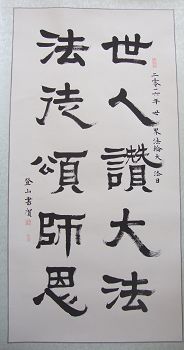 二零一六年 世界法輪大法日
世人讚大法
法徒頌師恩
登山書賀